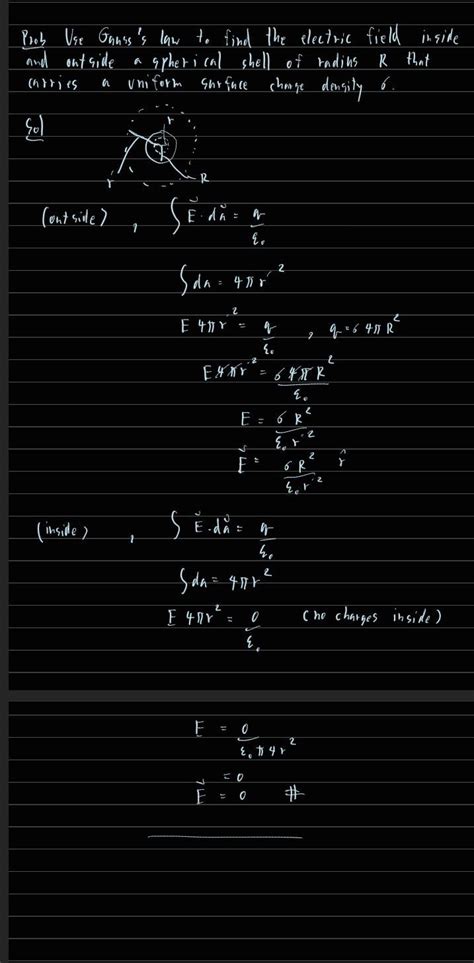 Prob Use Gauss's law to find the electric field inside
and outside a spherical shell of radius R that
carries a uniform surface charge density σ.
Sol
r
r
R
(outside), ∫ E⃗ · da⃗ = q/ε₀
∫ da = 4πr²
E 4πr² = q/ε₀ , q = σ 4πR²
E 4πr² = σ 4πR²/ε₀
E = σR²/ε₀r²
E⃗ = σR²/ε₀r² r̂
(inside), ∫ E⃗ · da⃗ = q/ε₀
∫ da = 4πr²
E 4πr² = 0/ε₀ (no charges inside)
E = 0/ε₀π4r²
= 0
E⃗ = 0 #